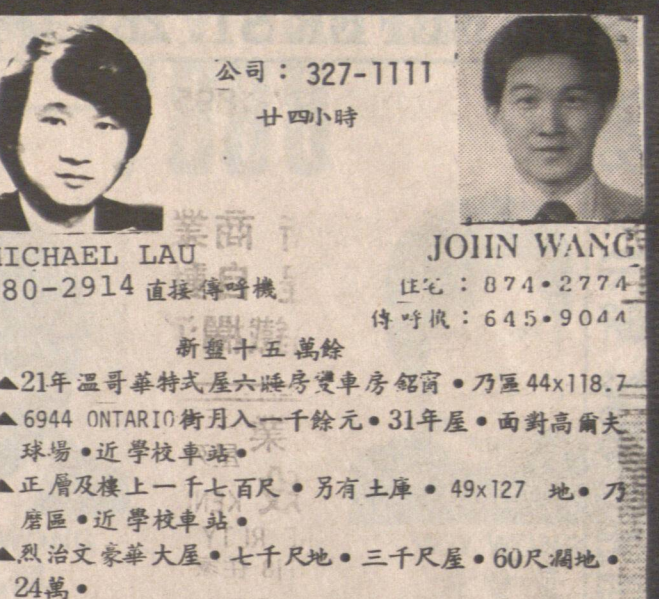 公司：327-1111
廿四小時
MICHAEL LAU
80-2914 直接傳呼機
JOHN WANG
住宅：874•2774
傳呼機：645•9044
新盤十五萬餘
▲21年溫哥華特式屋六睡房雙車房鋁窗•乃區44x118.7
▲6944 ONTARIO街月入一千餘元•31年屋•面對高爾夫
球場•近學校車站•
▲正層及樓上一千七百尺•另有土庫•49x127 地•乃
磨區•近學校車站•
▲烈治文豪華大屋•七千尺地•三千尺屋•60尺濶地•
24萬•